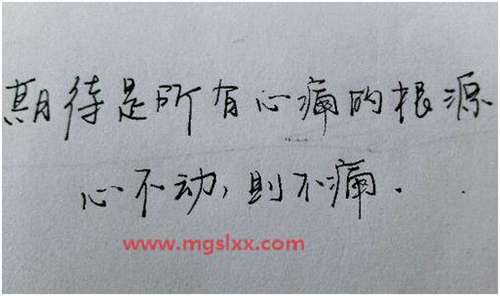 期待是所有心痛的根源
心不动，则不痛.
www.mgslxx.com